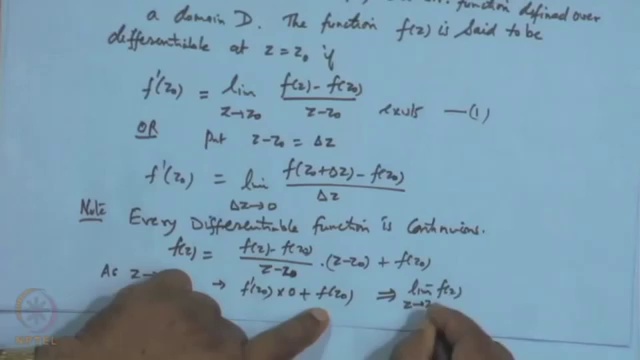 function defined over
a domain D. The function f(z) is said to be
differentiable at z = z₀ if
f'(z₀) = lim z→z₀ (f(z) - f(z₀))/(z - z₀) exists —(1)
OR Put z-z₀ = Δz
f'(z₀) = lim Δz→0 (f(z₀+Δz) - f(z₀))/Δz
Note Every Differentiable function is Continuous.
f(z) = (f(z) - f(z₀))/(z-z₀) · (z-z₀) + f(z₀)
As z→ → f'(z₀) × 0 + f(z₀) ⇒ lim z→z f(z)
NPTEL